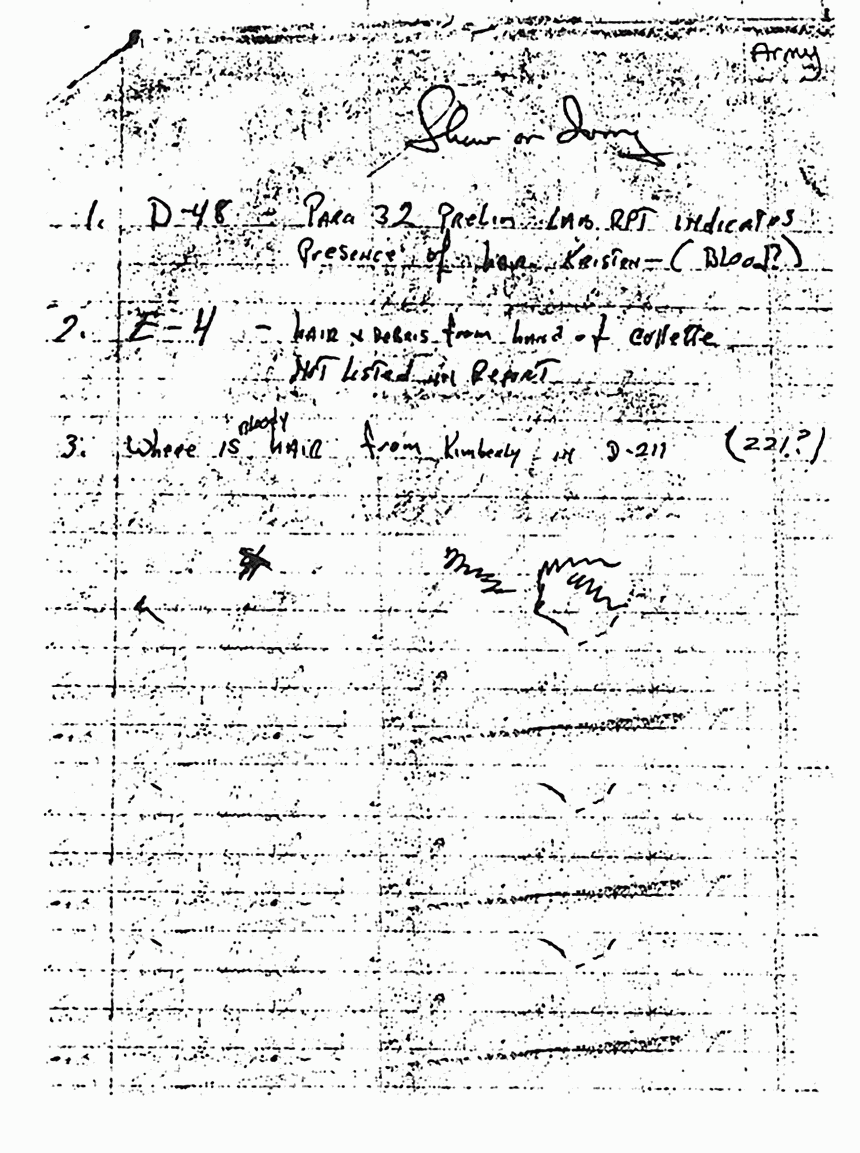 Army
Shaw or Ivory
1. D-48 - Para 32 Prelim Lab RPT indicates
Presence of hair Kristen - (Blood?)
2. E-4 - hair & debris from hand of Collette
Not Listed in Report
3. Where is bloody hair from Kimberly in D-211 (221?)